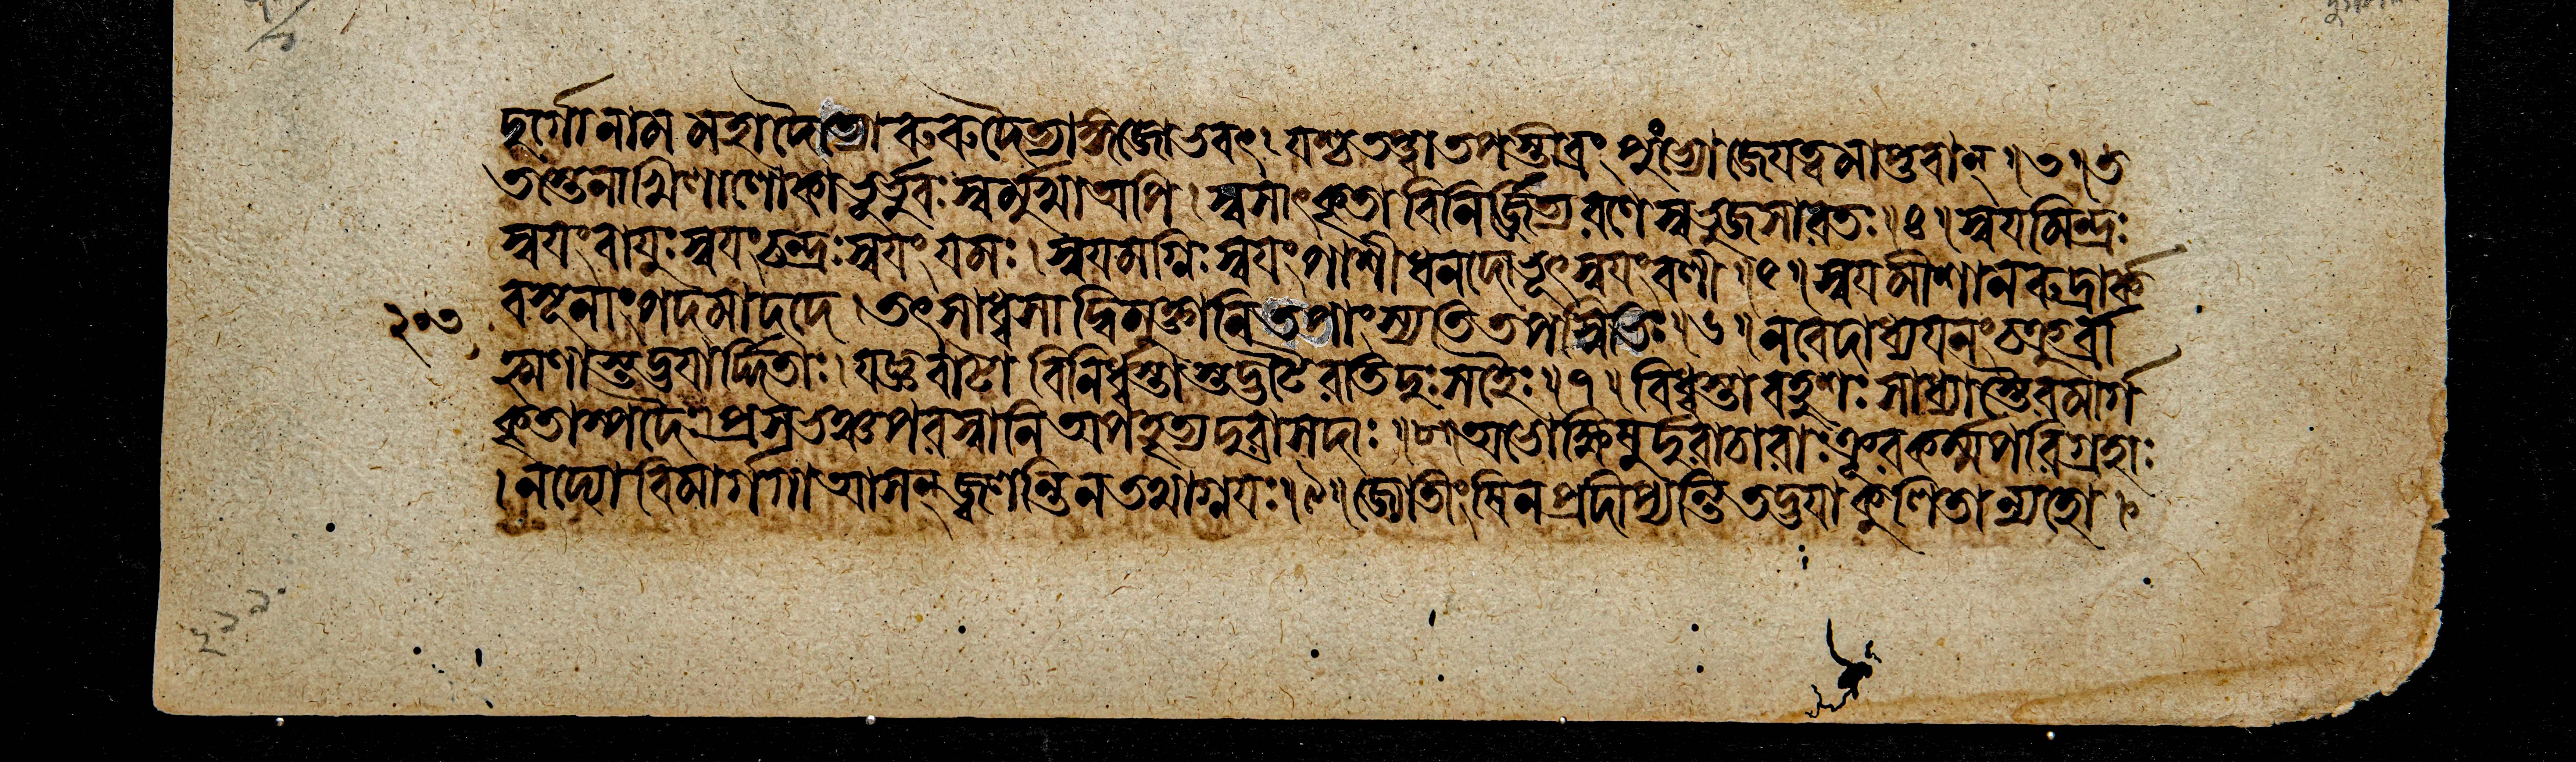 দুর্গো নাম মহাদৈত্যো রুরুদৈত্যাঙ্গজো ভবৎ। যশ্চ তপ্ত্বা তপস্তীব্রং পুংভ্যো জেযত্বমাপ্তবান্॥৩॥ত
তস্তেনাখিলা লোকা ভূর্ভুবঃ স্বর্মুখা অপি। স্বসাৎকৃতা বিনির্জ্জিত্য রণে স্বভুজসারতঃ॥৪॥স্বযমিন্দ্রঃ
স্বযং বাযুঃ স্বযং চন্দ্রঃ স্বযং যমঃ। স্বযমগ্নিঃ স্বযং পাশী ধনদো ভূৎ স্বযং বলী॥৫॥স্বযমীশানরুদ্রার্ক
২০৩ বসূনাং পদমাদদে। তৎসাধ্বসাদ্বিমুক্তানি তপাংস্যতি তপস্বিভিঃ॥৬॥ন বেদাধ্যযনং চক্রুর্ব্রা
হ্মণাস্তদ্ভযার্দ্দিতাঃ। যজ্ঞবাটা বিনির্ধ্বস্তাস্তদ্ভটৈরতিদুঃসহৈঃ॥৭॥বিধ্বস্তা বহুশঃ সাধ্ব্যস্তৈরমার্গ
কৃতাস্পদৈঃ। প্রসভঞ্চ পরস্বানি অপহৃত্য দুরাসদাঃ॥৮॥অভোক্ষিষুর্দুরাচারাঃ ক্রূরকর্ম্মপরিগ্রহাঃ
। নদ্যো বিমার্গগা আসন্ জ্বলন্তি ন তথাগ্নযঃ॥৯॥জ্যোতীংষি ন প্রদীপ্যন্তি তদ্ভযাকুলিতান্যহো।
২১১